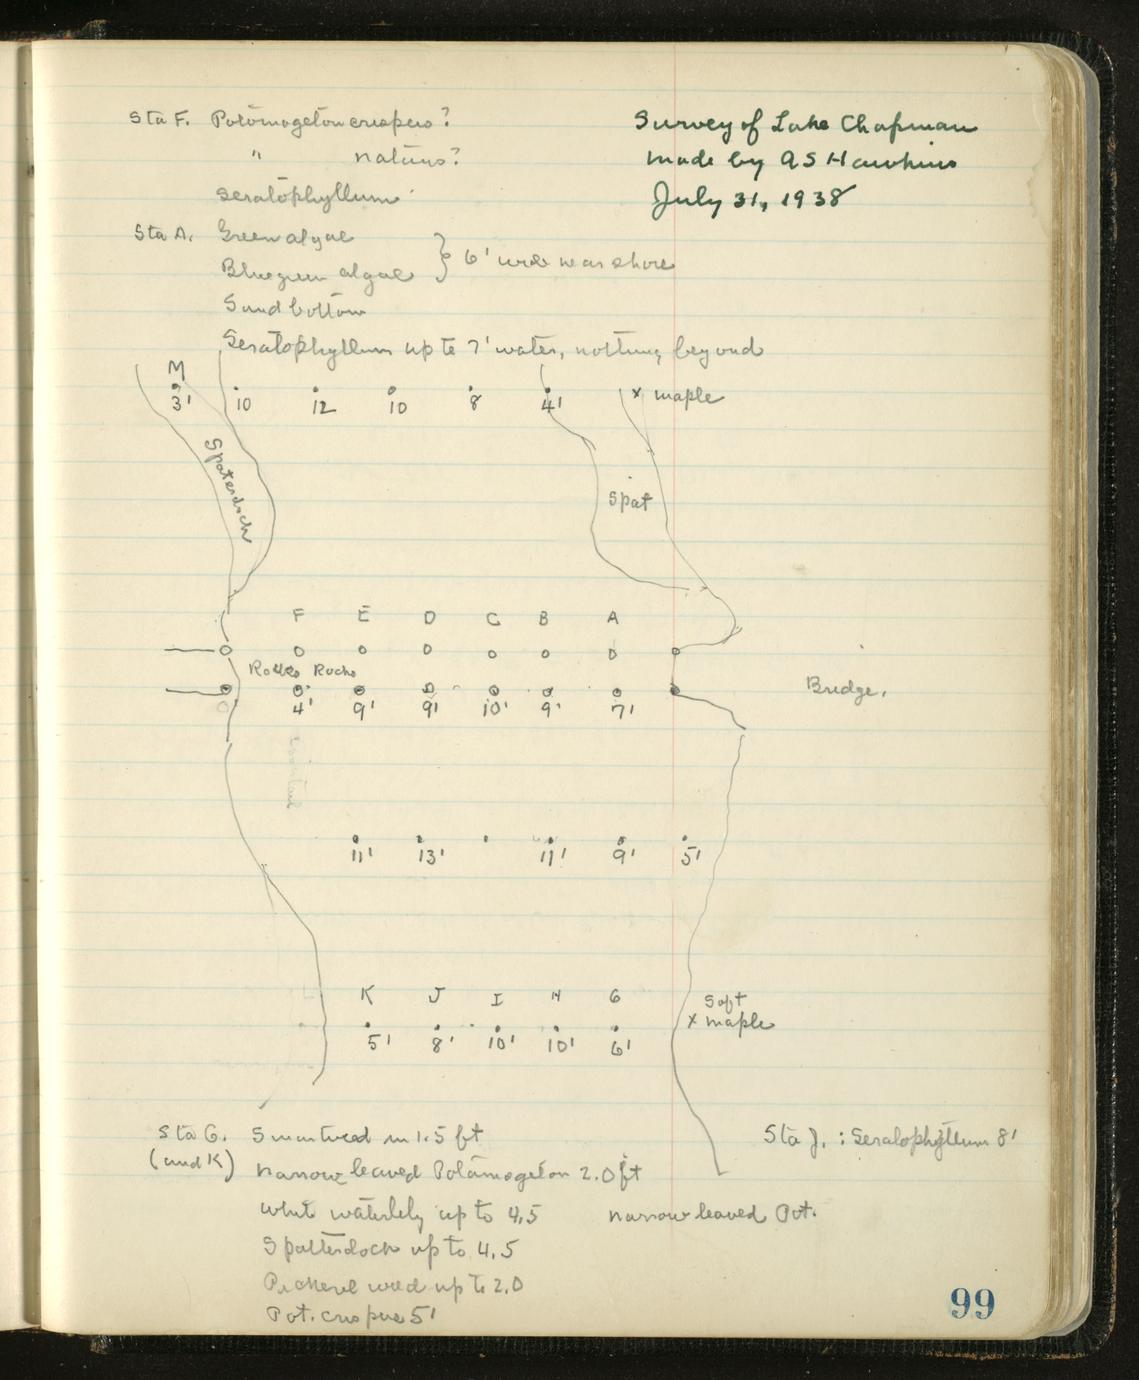 Sta F. Potomogeton crispus?
" natans?
Seratophyllum
Survey of Lake Chapman
made by AS Hawkins
July 31, 1938
Sta A. Green algae
Bluegreen algae } 6' wide near shore
Sand bottom
Seratophyllum up to 7' water, nothing beyond
M
3' 10 12 10 8 4' x maple
Spaterdock
Spat
F E D C B A
Rocks
Bridge.
4' 9' 9' 10' 9' 7'
11' 13' 11' 9' 5'
K J I H G
Soft
x maple
5' 8' 10' 10' 6'
Sta G. Smartweed in 1.5 ft
(and K) narrow leaved Potamogeton 2.0 ft
white waterlily up to 4.5
Spatterdock up to 4.5
Pickerel weed up to 2.0
Pot. crispus 5'
Sta J. : Seratophyllum 8'
narrow leaved Pot.
99